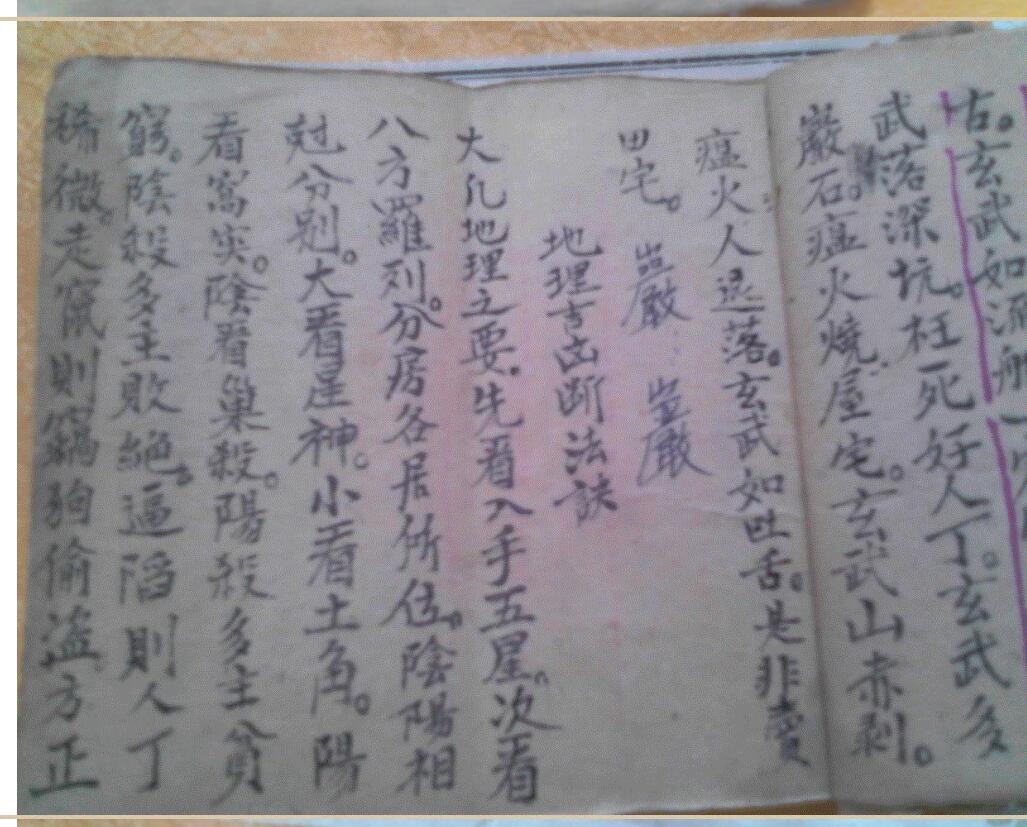 古。玄武如流船一
武落深坑。枉死好人丁。玄武多
巖石。瘟火燒屋宅。玄武山赤剥。
瘟火人退落。玄武如吐舌。是非賣
田宅。 巖 巖
地理吉凶断法訣
大凢地理之要。先看入手五星。次看
八方羅列。分房各居所位。陰陽相
尅分别。大看星神。小看土角。陽
看窩突。陰看巢殺。陽殺多主貧
窮。陰殺多主敗絕。逼陷則人丁
稀微。走竄則竊狗偷盗。方正